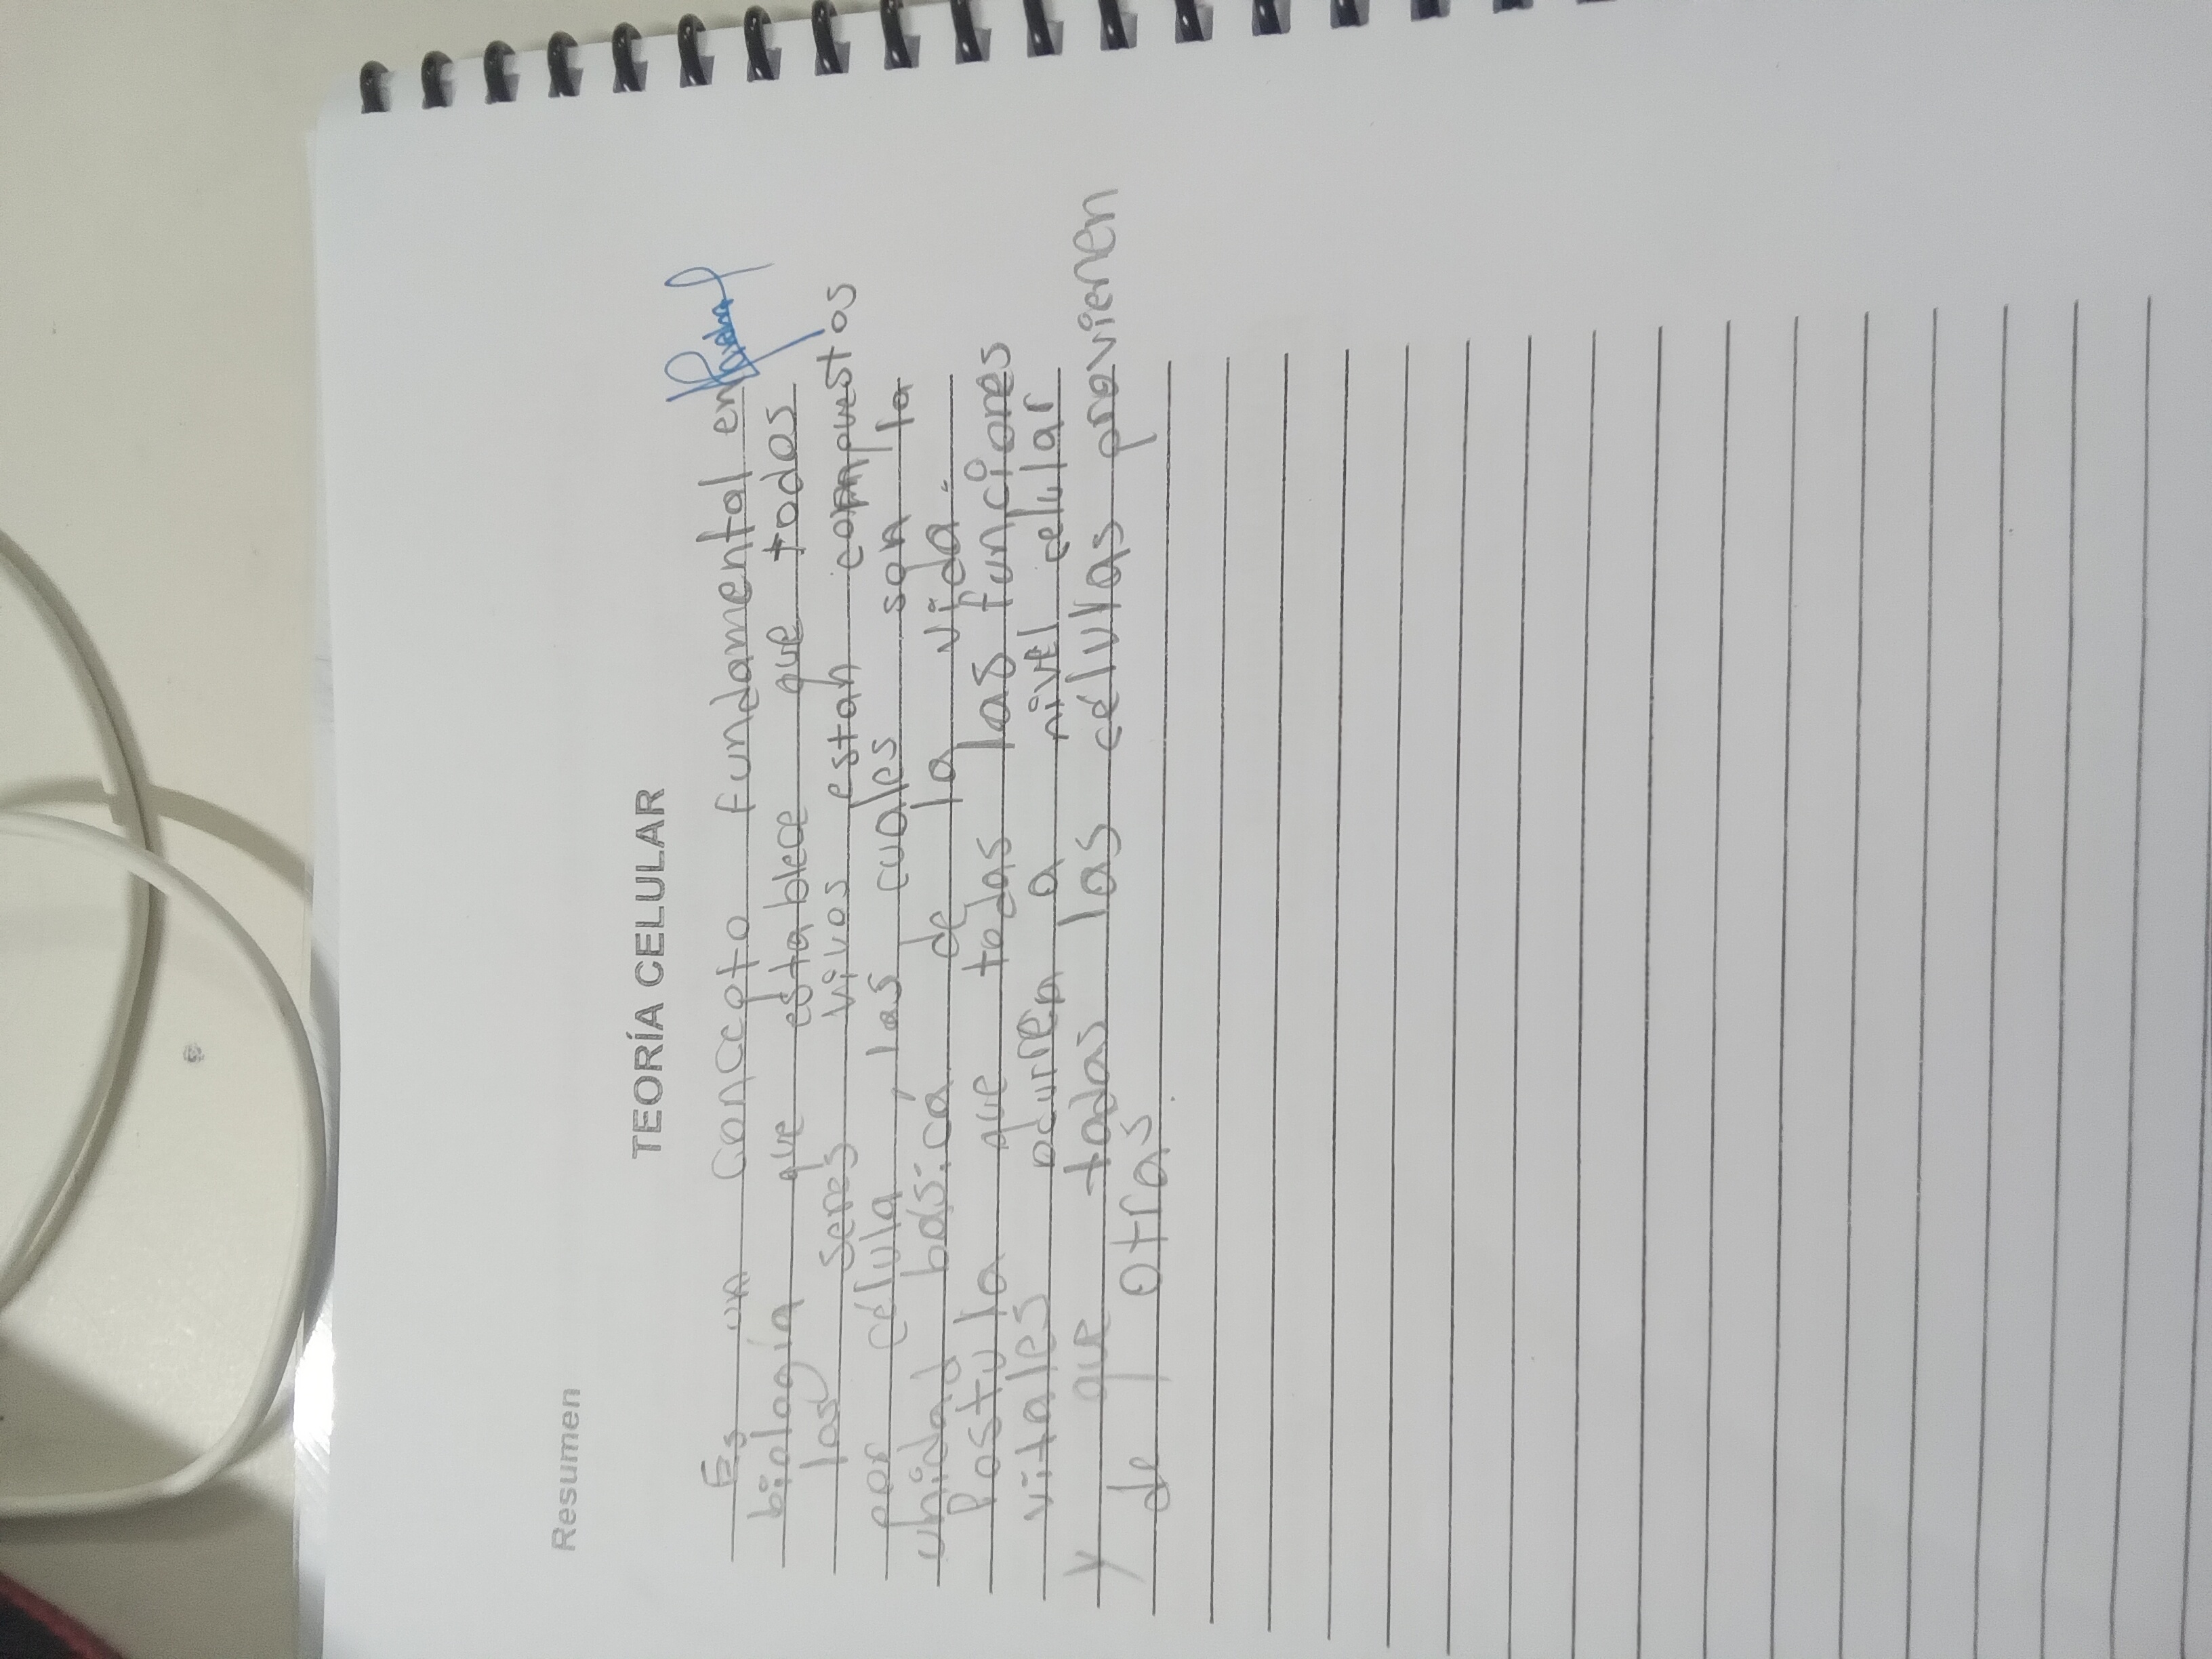 Resumen
TEORÍA CELULAR
Es un concepto fundamental en
biología que establece que todos
los seres vivos estan compuestos
por célula, las cuales son la
unidad básica de la vida.
Postula que todas las funciones
vitales ocurren a nivel celular
y que todas las células provienen
de otras.